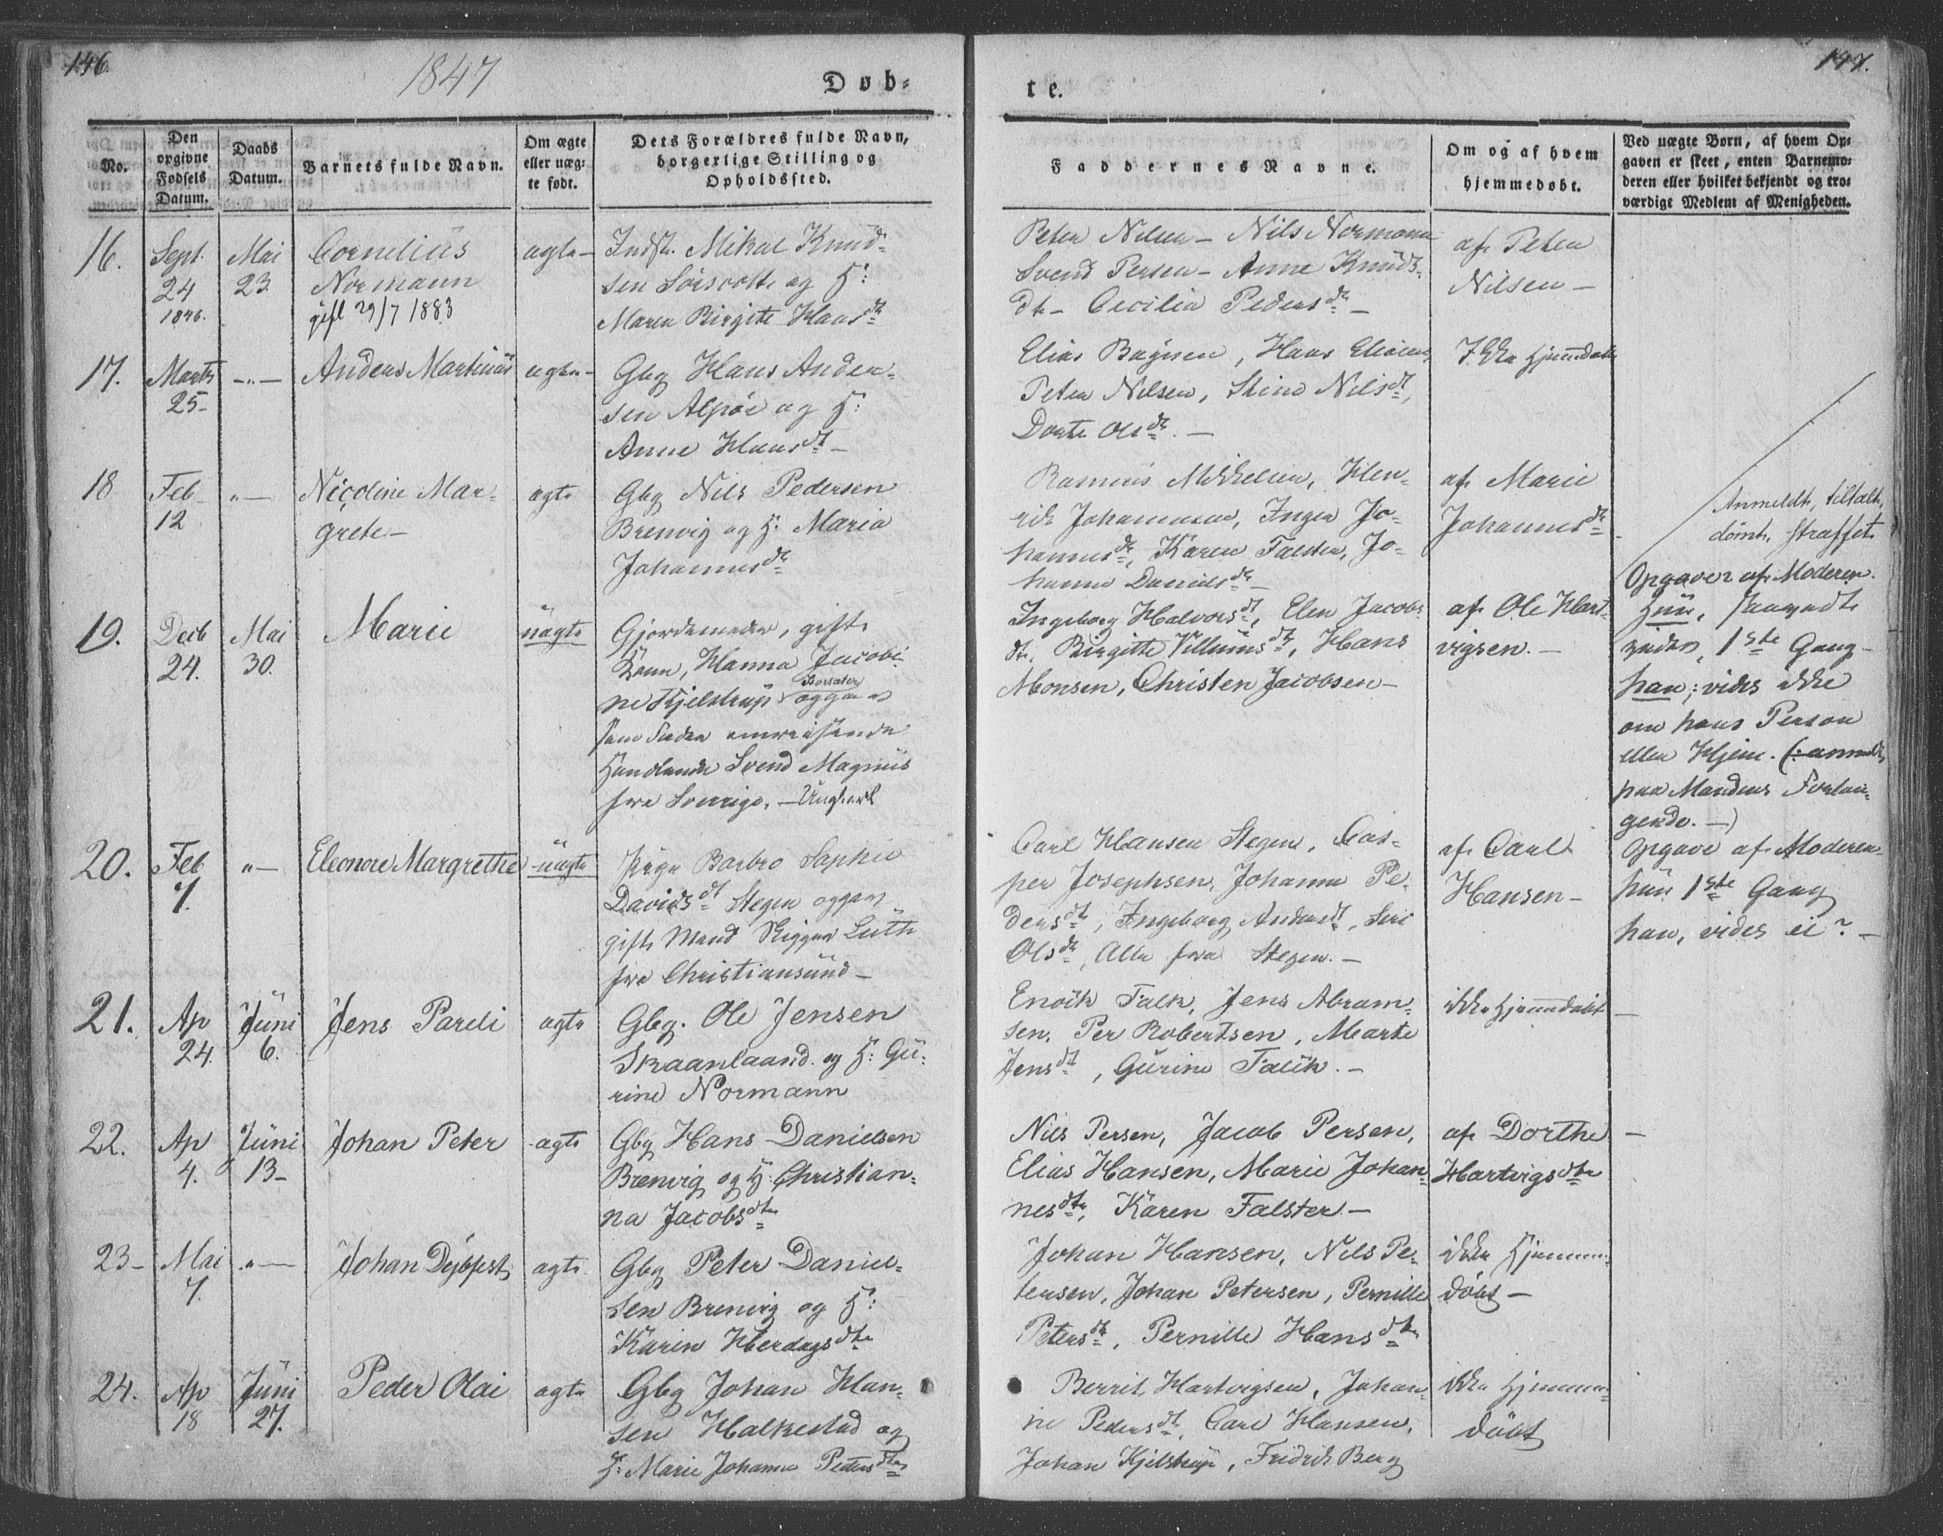 146.
1847
Døb-
te.
147.
No.
Den
opgivne
Fødsels
Datum.
Daabs
Datum.
Barnets fulde Navn.
Om ægte
eller uæg-
te født.
Dets Forældres fulde Navn,
borgerlige Stilling og
Opholdssted.
Faddernes Navne.
Om og af hvem
hjemmedøbt.
Ved uægte Børn, af hvem Op-
gaven er skeet, enten Barnemo-
deren eller hvilket bekjendt og tro-
værdigt Medlem af Menigheden.
16.
Sept.
24
1846.
Mai
23.
Cornelius
Normann
29/7 1883
ægte
Indst. Mikal Knud-
sen Sørscotte og H:
Maren Birgite Hansdt
Peter Nilsen - Nils Normann
Svend Persen - Anne Knuds-
dt - Cecilia Pedersdt -
af Peter
Nilsen -
17.
Marts
25-
-"-
Anders Martinus
ægte
Gbg Hans Ander-
sen Alpøe og H:
Anne Hansdt -
Elias Bognsen, Hans Eliasen,
Peter Nilsen, Stine Nilsdt,
Dorte Olsdt. -
Ikke hjemdøbt
18
Feb
12
"-
Nicoline Mar-
grete-
ægte
Gbg Nils Pedersen
Brenvig og H: Maria
Johannesdt
Rasmus Mikkelsen, Hen-
rik Johannesen, Inger Jo-
hannesdt, Karen Falster, Jo-
hanna Danielsdt -
af Marie
Johannesdt.
Anmeldt, tiltalt,
dømt, straffet
19.
Decb
24.
Mai
30.
Marie
uægte
Gjordemoder, gift
Kone, Hanna Jacobi-
ne Kjelstrup opgav
som Fader omreisende
Handlende Svend Magnus
fra Sverige, - Ungkarl
Ingeborg Halvorsdt, Elen Jacobs
dt, Birgitte Villumsdt, Hans
Monsen, Christen Jacobsen -
af Ole Hart-
vigsen. -
Opgaver af Moderen.
Hun,
1ste Gang -
han; vides ikke
om hans Person
eller Hjem. (: anmeldt
paa Mandens Forlan-
gende. -)
20.
Feb
7.
"-
Eleonore Margrethe
uægte
Pige Barbro Sophie
Davidsdt Stegen opgav
gift Mand Skipper Lüth
fra Christiansund -
Carl Hansen Stegen, Cas-
per Josephsen, Johanna Pe-
dersdt, Ingeborg Andersdt, Siri
Olsdt, Alle fra Stegen. -
af Carl
Hansen -
Opgave af Moderen
hun 1ste Gang
han, vides ei? -
21.
Ap
24.
Juni
6.
Jens Pareli
ægte
Gbg. Ole Jensen
Skaanlaand. og H: Gu-
rine Normann
Enoch Falch, Jens Abram-
sen, Per Robertsen, Marte
Jensdt, Gurine Falch. -
ikke hjemmdøbt -
22.
Ap
4.
Juni
13-
Johan Peter
ægte
Gbg Hans Danielsen
Brenvig og H: Christian-
na Jacobsdtr
Nils Persen, Jacob Persen,
Elias Hansen, Marie Johan-
nesdtr, Karen Falster -
af Dorthe -
Hartvigsdtr
23-
Mai
7.
"-
Johan Dÿbfest
ægte
Gbg Peter Daniel-
sen Brenvig og H:
Karen Herdagsdtr
Johan Hansen, Nils Pe-
tersen, Johan Petersen, Pernille
Petersdt, Pernille Hansdtr
ikke hjemm-
døbt -
24.
Ap
18
Juni
27.
Peder Olai
ægte
Gbg Johan Han-
sen Halkestad og
H: Marie Johanna Pedersdtr
Berrit Hartvigsen, Johan-
ne Pedersdt, Carl Hansen,
Johan Kjelstrup, Fridrik Berg
ikke hjemm-
døbt